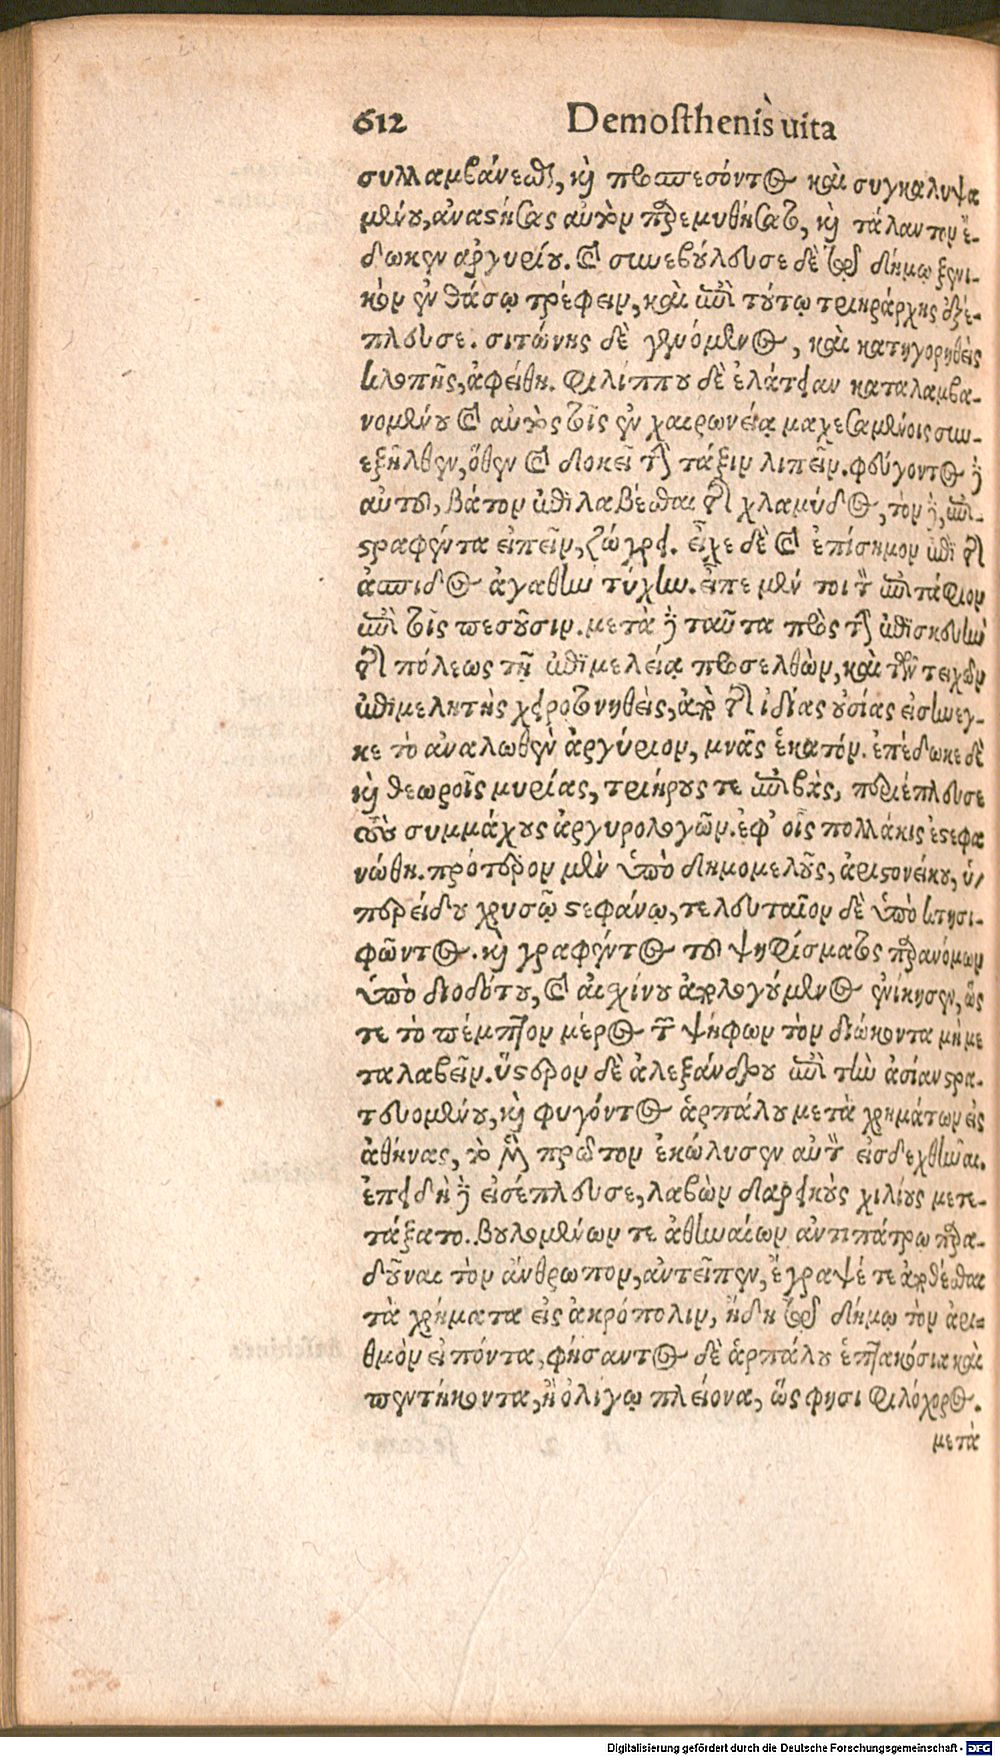 612 Demosthenis uita
συλλαμβάνεσθαι, καὶ προσπεσόντος καὶ συγκαλυψα
μένου, ἀναστήσας αὐτὸν παρεμυθήσατο, καὶ τάλαντον ἔ-
δωκεν ἀργυρίου. καὶ συνεβούλευσε δὲ τῷ δήμῳ ξενι-
κὸν ἐν θάσῳ τρέφειν, καὶ ἐπὶ τούτῳ τριηράρχης ἐξέ-
πλευσε. σιτώνης δὲ γενόμενος, καὶ κατηγορηθεὶς
κλοπῆς, ἀφείθη. Φιλίππου δὲ ἐλάτειαν καταλαμβα-
νομένου καὶ αὐτὸς τοῖς ἐν χαιρωνείᾳ μαχεσαμένοις συν-
εξῆλθεν, ὅθεν καὶ δοκεῖ τὴν τάξιν λιπεῖν. φεύγοντος δὲ
αὐτοῦ, βάτον ἐπιλαβέσθαι τῆς χλαμύδος, τὸν δὲ, ἐπι-
στραφέντα εἰπεῖν, ζώγρει. εἶχε δὲ καὶ ἐπίσημον ἐπὶ τῆς
ἀσπίδος ἀγαθὴν τύχην. εἶπε μέν τοι τὸν ἐπιτάφιον
ἐπὶ τοῖς πεσοῦσιν. μετὰ δὲ ταῦτα πρὸς τὴν ἐπισκευὴν
τῆς πόλεως τῇ ἐπιμελείᾳ προσελθὼν, καὶ τῶν τειχῶν
ἐπιμελητὴς χειροτονηθεὶς, ἀπὸ τῆς ἰδίας οὐσίας εἰσήνεγ-
κε τὸ ἀναλωθὲν ἀργύριον, μνᾶς ἑκατόν. ἐπέδωκε δὲ
καὶ θεωροῖς μυρίας, τριήρους τε ἐπιβὰς, περιέπλευσε
τοὺς συμμάχους ἀργυρολογῶν. ἐφ' οἷς πολλάκις ἐστεφα
νώθη. πρότερον μὲν ὑπὸ δημομελοῦς, ἀριστονείκου, ὑ-
περείδου χρυσῷ στεφάνῳ, τελευταῖον δὲ ὑπὸ κτησι-
φῶντος. καὶ γραφέντος τοῦ ψηφίσματος παρανόμων
ὑπὸ διοδότου, καὶ αἰσχίνου ἀπολογούμενος ἐνίκησεν, ὥς
τε τὸ πέμπτον μέρος τῶν ψήφων τὸν διώκοντα μὴ με
ταλαβεῖν. ὕστερον δὲ ἀλεξάνδρου ἐπὶ τὴν ἀσίαν στρα-
τευομένου, καὶ φυγόντος ἁρπάλου μετὰ χρημάτων εἰς
ἀθήνας, τὸ μὲν πρῶτον ἐκώλυσεν αὐτὸν εἰσδεχθῆναι.
ἐπειδὴ δὲ εἰσέπλευσε, λαβὼν δαρεικοὺς χιλίους μετε-
τάξατο. βουλομένων τε ἀθηναίων ἀντιπάτρῳ παρα-
δοῦναι τὸν ἄνθρωπον, ἀντεῖπεν, ἔγραψέ τε ἀποθέσθαι
τὰ χρήματα εἰς ἀκρόπολιν, ἤδη τῷ δήμῳ τὸν ἀρι-
θμὸν εἰπόντα, φήσαντος δὲ ἁρπάλου ἑπτακόσια καὶ
πεντήκοντα, ἢ ὀλίγῳ πλείονα, ὥς φησι φιλόχορος.
μετὰ
Digitalisierung gefördert durch die Deutsche Forschungsgemeinschaft - DFG